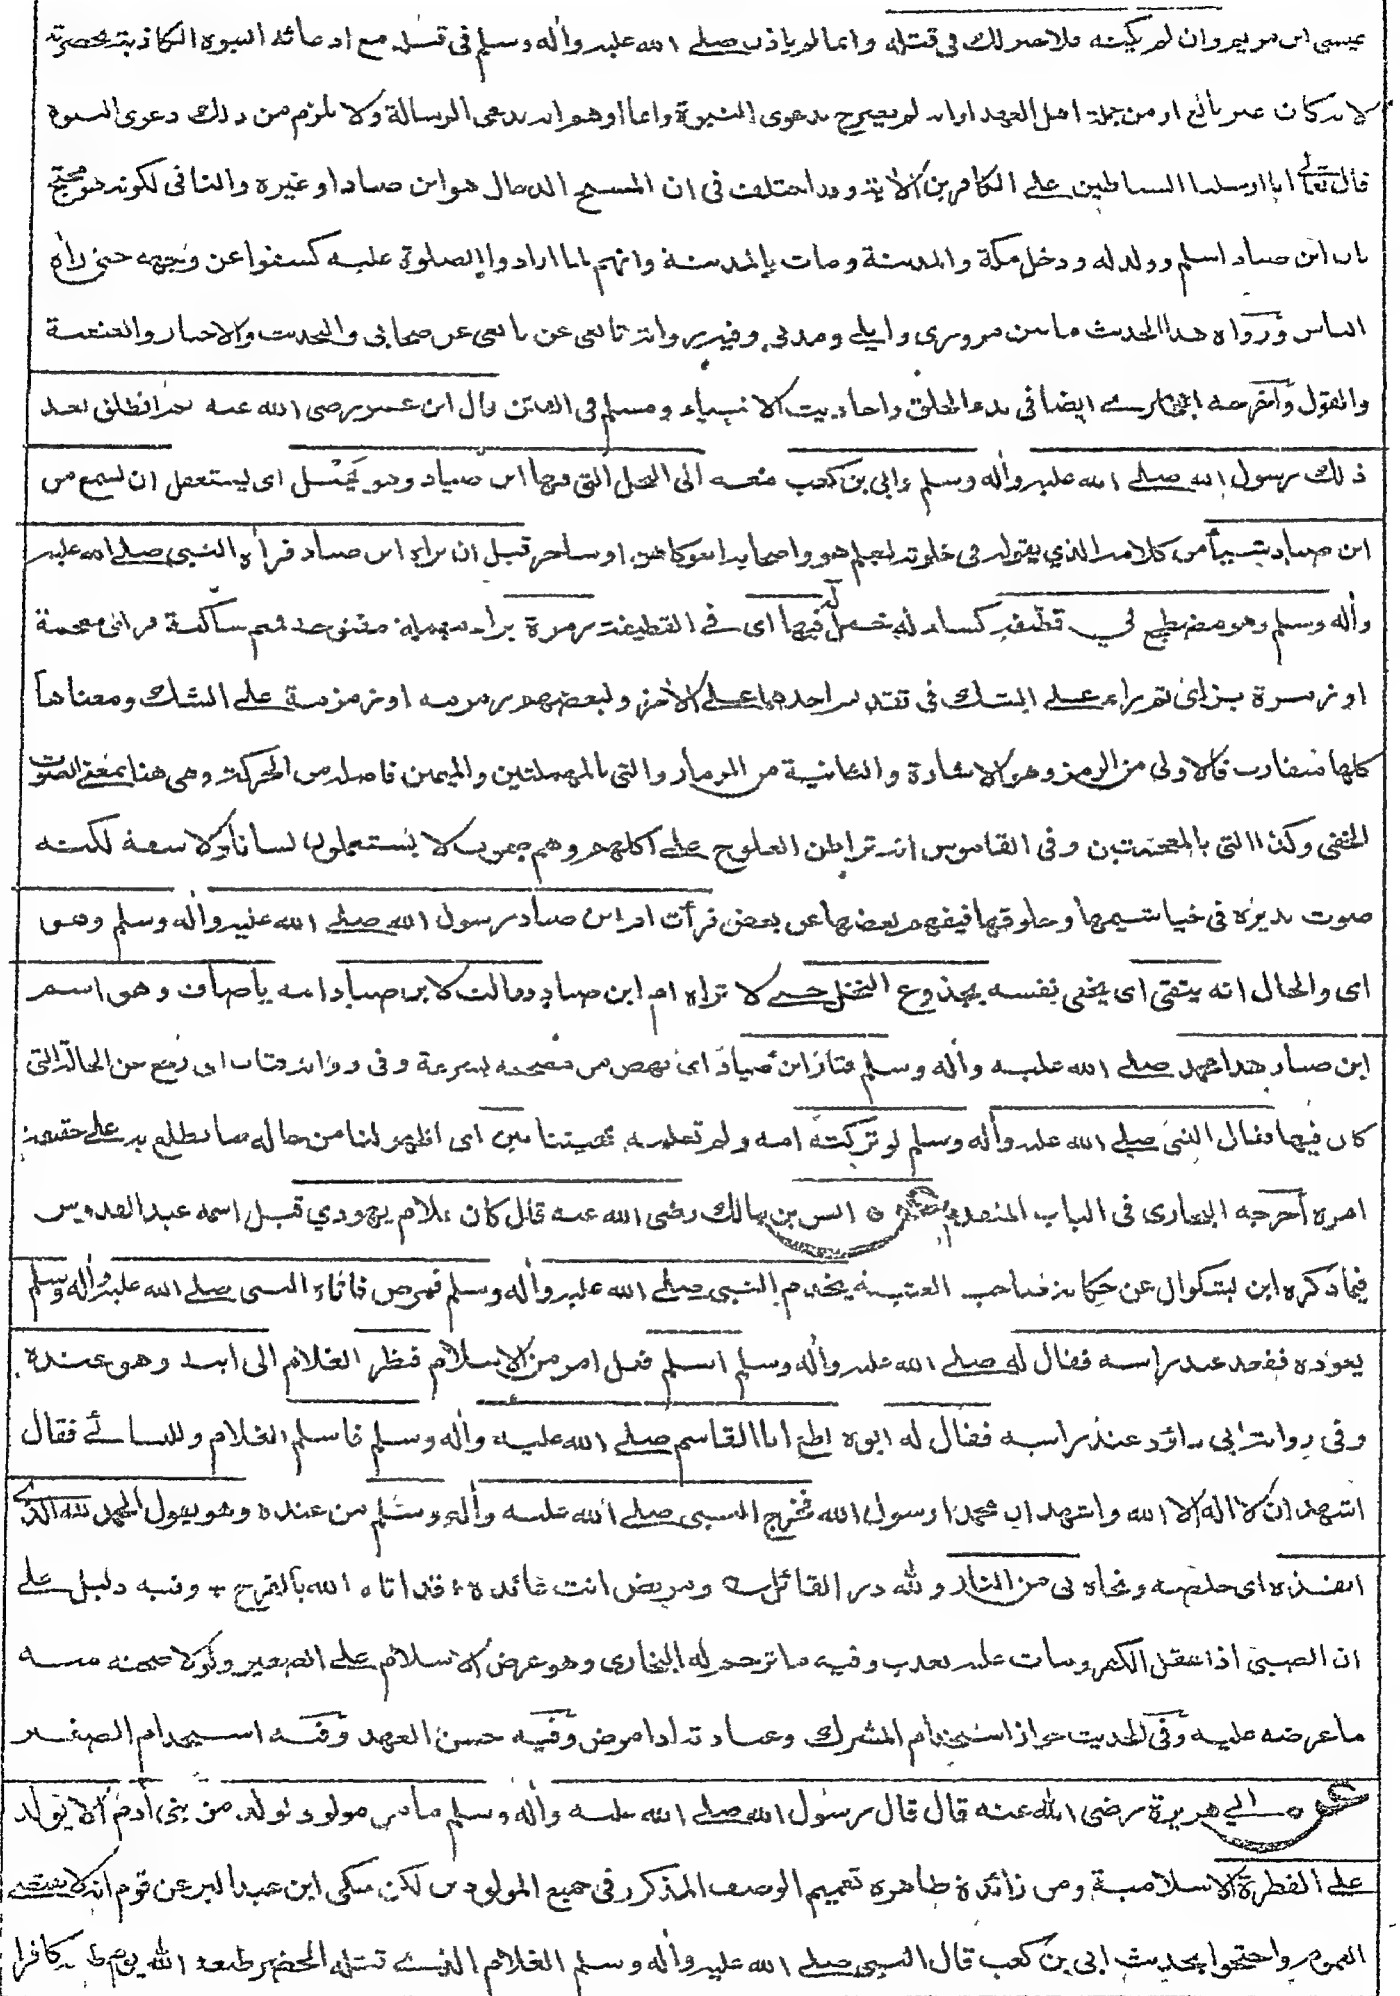 عيسى ابن مريم وان لم يكنه فلا خير لك في قتله وانما لم ياذن صلے الله عليه وأله وسلم في قتله مع ادعائه النبوة الكاذبة بحضرته
لانه كان غير بالغ او من جملة اهل العهد او انه لم يصرح بدعوى النبوة وانما اوهم انه يدعى الرسالة ولا يلزم من ذلك دعوى النبوة
قال تعالى انا ارسلنا الشياطين على الكافرين الأية وقد اختلف في ان المسيح الدجال هو ابن صياد او غيره والنافي لكونه هو محتج
بان ابن صياد اسلم وولد له ودخل مكة والمدينة ومات بالمدينة وانهم لما ارادوا الصلوة عليه كشفوا عن وجهه حتى رأه
الناس ورواة هذا الحديث ما بين مروزى وايلى ومدنى وفيه رواية تابعى عن تابعى عن صحابى والتحديث والاخبار والعنعنة
والقول وأخرجه البخارى ايضا فى بدء الخلق واحاديث الانبياء ومسلم فى الفتن قال ابن عمر رضى الله عنه ثم انطلق بعد
ذلك رسول الله صلے الله عليه وأله وسلم وابى بن كعب معه الى النخل التى فيها ابن صياد وهو يختل اى يستغفل ان يسمع من
ابن صياد شيأ من كلامه الذي يقوله فى خلوته ليعلم هو واصحابه اهو كاهن او ساحر قبل ان يراه ابن صياد فرأه النبى صلے الله عليه
وأله وسلم وهو مضطجع في قطيفة كساء له خمل له فيها اى فے القطيفة رمزة براء مهملة مفتوحة فميم ساكنة فزاى معجمة
او زمرة بزاى ثم راء على الشك فى تقديم احدهما على الأخر ولبعضهم رمرمة او زمزمة على الشك ومعناها
كلها متقارب فالاولى من الرمز وهو الاشارة والثانية من المزمار والتى بالمهملتين والميمين فاصله من الحركة وهى هنا بمعنى الصوت
الخفى وكذا التى بالمعجمتين وفى القاموس انه تراطن العلوج على اكلهم وهم صموت لا يستعملون لسانا ولا شفة لكنه
صوت تديره فى خياشيمها وحلوقها فيفهم بعضها عن بعض فرأت ام ابن صياد رسول الله صلے الله عليه وأله وسلم وهو
اى والحال انه يتقى اى يخفى نفسه بجذوع النخل حتى لا تراه ام ابن صياد فقالت لابن صياد امه ياصاف وهو اسم
ابن صياد هذا محمد صلے الله عليه وأله وسلم فثار ابن صياد اى نهض من مضجعه بسرعة وفى رواية فثاب اى رجع عن الحالة التى
كان فيها فقال النبى صلے الله عليه وأله وسلم لو تركته امه ولم تعلمه بمجيئنا بين اى اظهر لنا من حاله ما نطلع به على حقيقة
امره أخرجه البخارى فى الباب المتقدم عن انس بن مالك رضى الله عنه قال كان غلام يهودي قيل اسمه عبد القدوس
فيما ذكره ابن بشكوال عن حكاية صاحب العتبية يخدم النبى صلے الله عليه وأله وسلم فمرض فاتاه النبى صلے الله عليه وأله وسلم
يعوده فقعد عند راسه فقال له صلے الله عليه وأله وسلم اسلم فعل امر من الاسلام فنظر الغلام الى ابيه وهو عنده
وفى رواية ابى داؤد عند راسه فقال له ابوه اطع ابا القاسم صلے الله عليه وأله وسلم فاسلم الغلام وللنسائے فقال
اشهد ان لا اله الا الله واشهد ان محمدا رسول الله فخرج النبى صلے الله عليه وأله وسلم من عنده وهو يقول الحمد لله الذى
انقذه اى خلصه ونجاه بى من النار ولله در القائل ومريض انت عائده ؛ قد اتاه الله بالفرج + وفيه دليل على
ان الصبى اذا عقل الكفر ومات عليه يعذب وفيه ما ترجم له البخارى وهو عرض الاسلام على الصغير ولولا صحته منه
ما عرضه عليه وفى الحديث جواز استخدام المشرك وعيادته اذا مرض وفيه حسن العهد وفيه استخدام الصغير
عن ابي هريرة رضى الله عنه قال قال رسول الله صلے الله عليه وأله وسلم ما من مولود يولد من بنى أدم الا يولد
على الفطرة الاسلامية ومن زائدة ظاهره تعميم الوصف المذكور فى جميع المولودين لكن حكى ابن عبد البر عن قوم انه لا يقتضى
العموم واحتجوا بحديث ابى بن كعب قال النبى صلے الله عليه وأله وسلم الغلام الذے قتله الخضر طبعه الله يوم طبعه كافرا